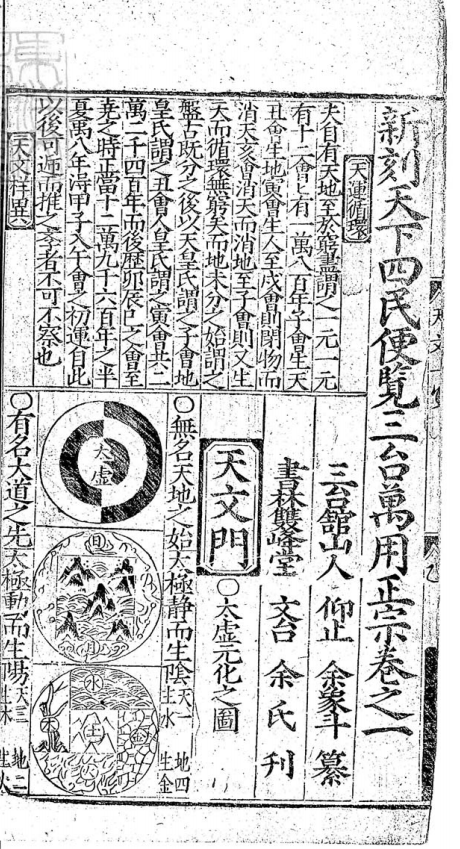 新刻天下四民便覽三台萬用正宗卷之一
天運循環
夫自有天地至於窮盡謂之一元一元
有十二會一會有一萬八百年子會生天
丑會生地寅會生人至戌會則閉物而
消天亥會消天而消地至子會則又生
天而循環無窮矣而地未分之始謂之
盤古既分之後以天皇氏謂之子會地
皇氏謂之丑會人皇氏謂之寅會共三
萬二千四百年而後歷卯辰巳之會至
堯之時正當十二萬九千六百年之半
夏禹八年得甲子入午會之初運自此
以後可迎而推之矣者不可不察也
天文祥異
三台舘山人 仰止 余象斗 纂
書林雙峰堂 文台 余氏 刊
天文門
〇太虛元化之圖
〇無名天地之始太極靜而生陰天一生水 地四生金
太虛
日
月
水
土
〇有名大道之先太極動而生陽天三生木 地二生火